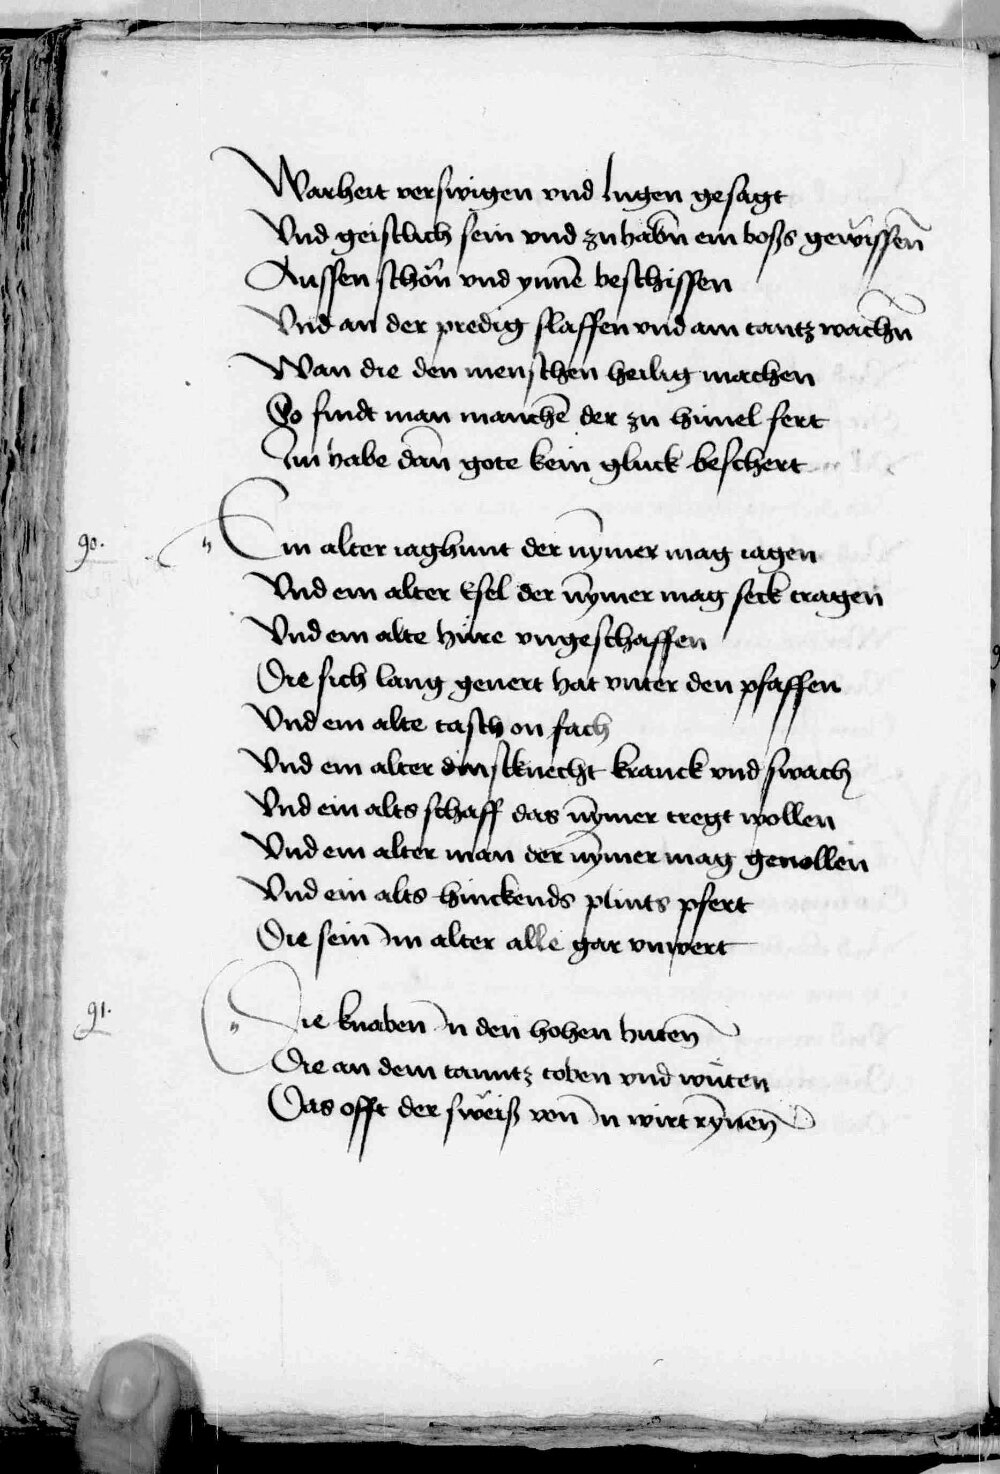 Warheit verswigen vnd lugen gesagt
Vnd geistlich sein vnd zu habñ ein boßs gewissen̄
Aussen schön vnd ynnē beschissen
Vnd an der predig slaffen vnd am tantz wachn̄
Wan die den menschen heilig machen
So findt man manchē der zu himel fert
Im habe dan̄ gote kein gluck beschert
90.
Ein alter iaghunt der nȳmer mag iagen
Vnd ein alter Esel der nȳmer mag seck tragen
Vnd ein alte hure vngeschaffen
Die sich lang genert hat vnter den pfaffen
Vnd ein alte tasch on fach
Vnd ein alter dinstknecht kranck vnd swach
Vnd ein alts schaff das nȳmer tregt wollen
Vnd ein alter man der nȳmer mag genollen
Vnd ein alts hinckends plints pfert
Die sein im alter alle gar vnwert
91.
Die knaben in den hohen huten
Die an dem tanntz toben vnd wüten
Das offt der sweiß von in wirt rȳnen